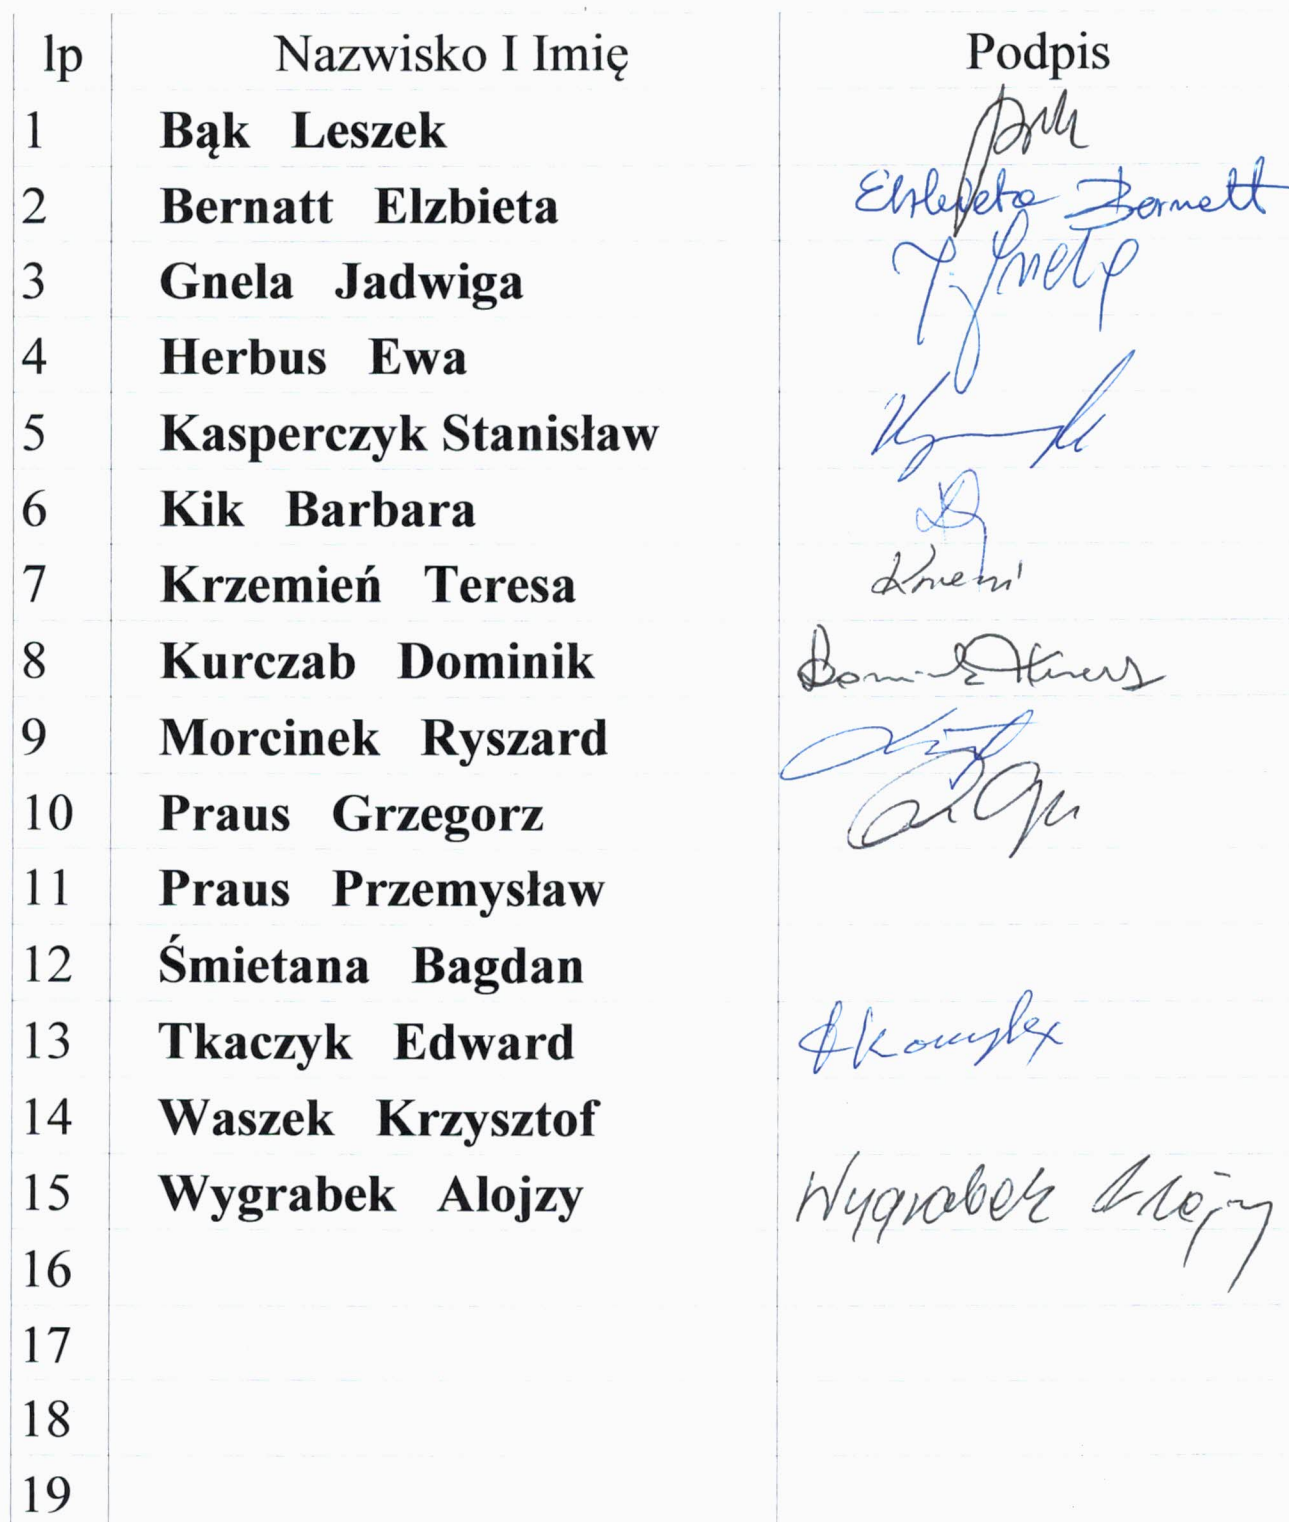 lp Nazwisko I Imię Podpis
1 Bąk Leszek
2 Bernatt Elzbieta Elżbieta Bernatt
3 Gnela Jadwiga J. Gnela
4 Herbus Ewa
5 Kasperczyk Stanisław
6 Kik Barbara
7 Krzemień Teresa
8 Kurczab Dominik Dominik
9 Morcinek Ryszard
10 Praus Grzegorz
11 Praus Przemysław
12 Śmietana Bagdan
13 Tkaczyk Edward
14 Waszek Krzysztof
15 Wygrabek Alojzy Wygrabek Alojzy
16
17
18
19